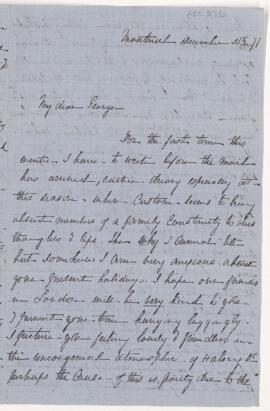 Montreal December 21st/71
My dear George
For the first time this
winter I have to write before the mail
has arrived, rather dreary especially at
this season when Custom seems to bring
absent members of a family constantly to one's
thoughts & lips. Why I cannot tell
but somehow I am very anxious about
your present holidays. I hope our friends
in London will be very kind to you
I picture you feeling lonely &
this uncongenial atmosphere of
perhaps the cause of this is partly due to the